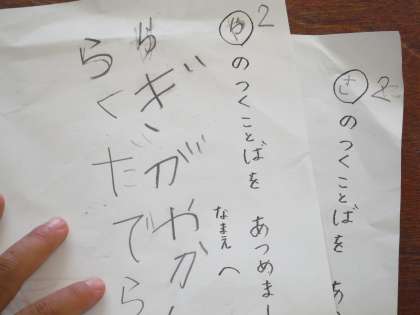 さ2
のつくことばを あ
や2
のつくことばを あつめまし
なまえ へ
やか
らくだでら